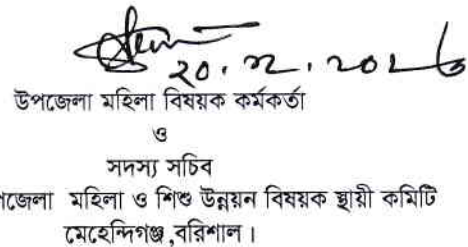 ২০.১২.২০১৬
উপজেলা মহিলা বিষয়ক কর্মকর্তা
ও
সদস্য সচিব
জেলা মহিলা ও শিশু উন্নয়ন বিষয়ক স্থায়ী কমিটি
মেহেন্দিগঞ্জ,বরিশাল।